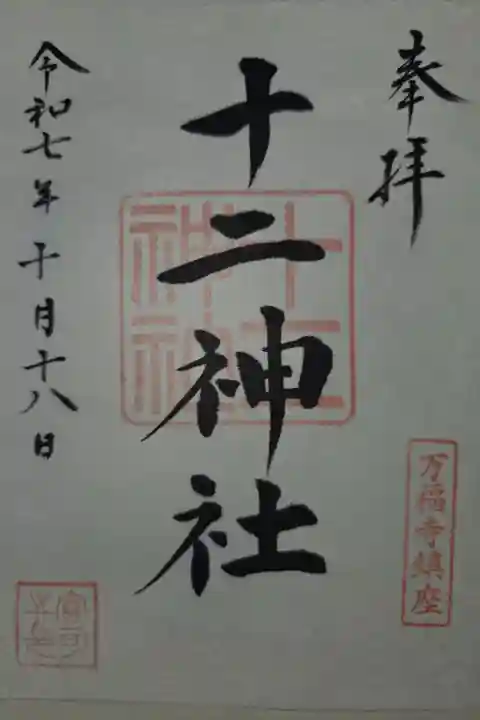 奉拝
万福寺鎮座
十二神社
十二神社
令和七年十月十八日